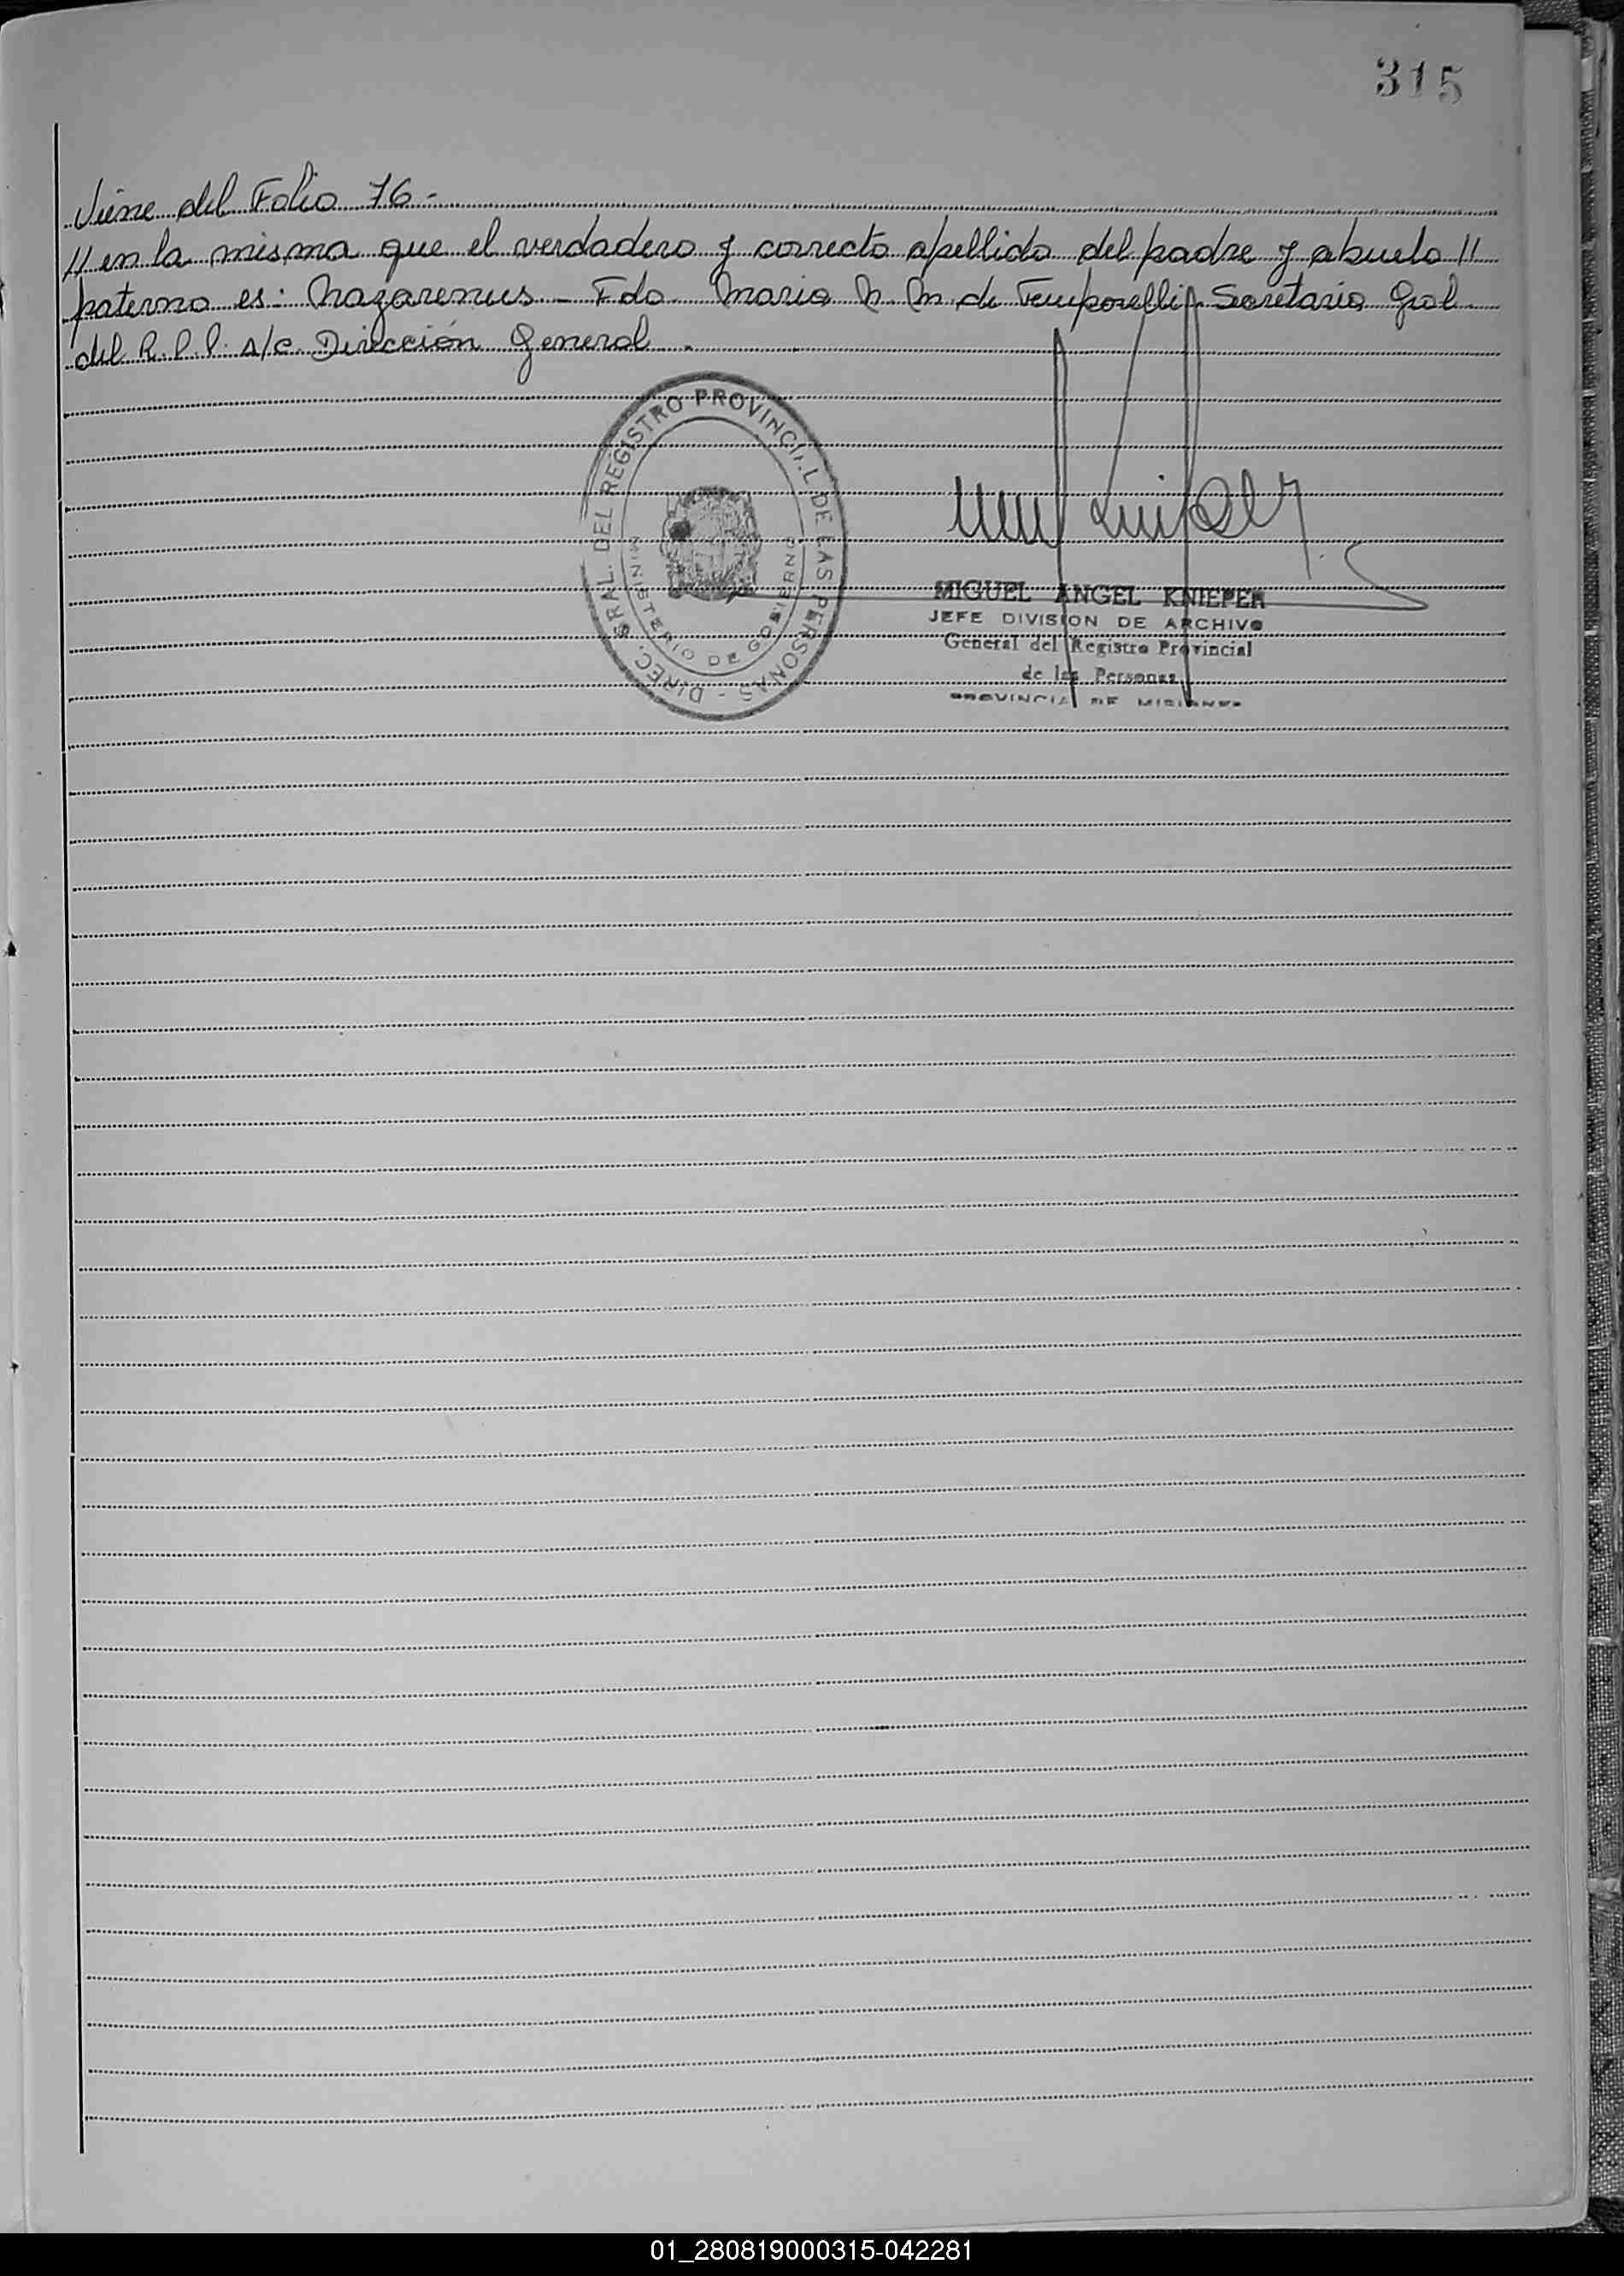 315
Viene del Folio 76 -
// en la misma que el verdadero y correcto apellido del padre y abuelo //
paterno es: Nazarenus - Fdo. Maria N. M. de Temporelli - Secretaria Gral.
del R.P.P. A/C. Dirección General.
DIREC. GRAL. DEL REGISTRO PROVINCIAL DE LAS PERSONAS -
MINISTERIO DE GOBIERNO
MIGUEL ANGEL KNIEPER
JEFE DIVISION DE ARCHIVO
General del Registro Provincial
de las Personas
PROVINCIA DE MISIONES
01_280819000315-042281